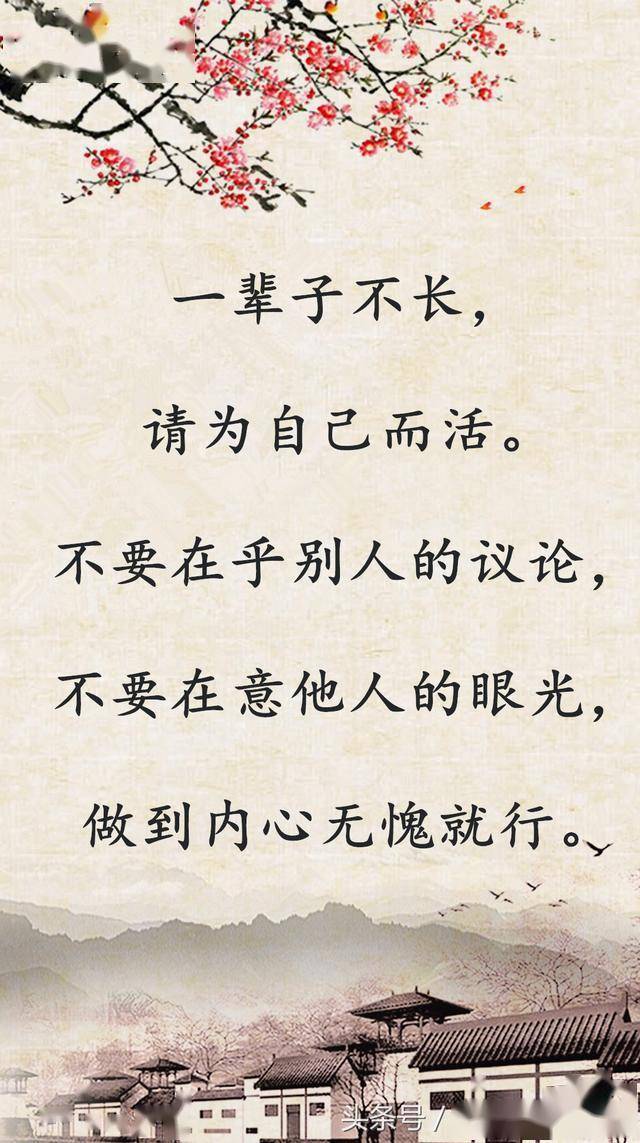 一辈子不长，
请为自己而活。
不要在乎别人的议论，
不要在意他人的眼光，
做到内心无愧就行。
头条号 /